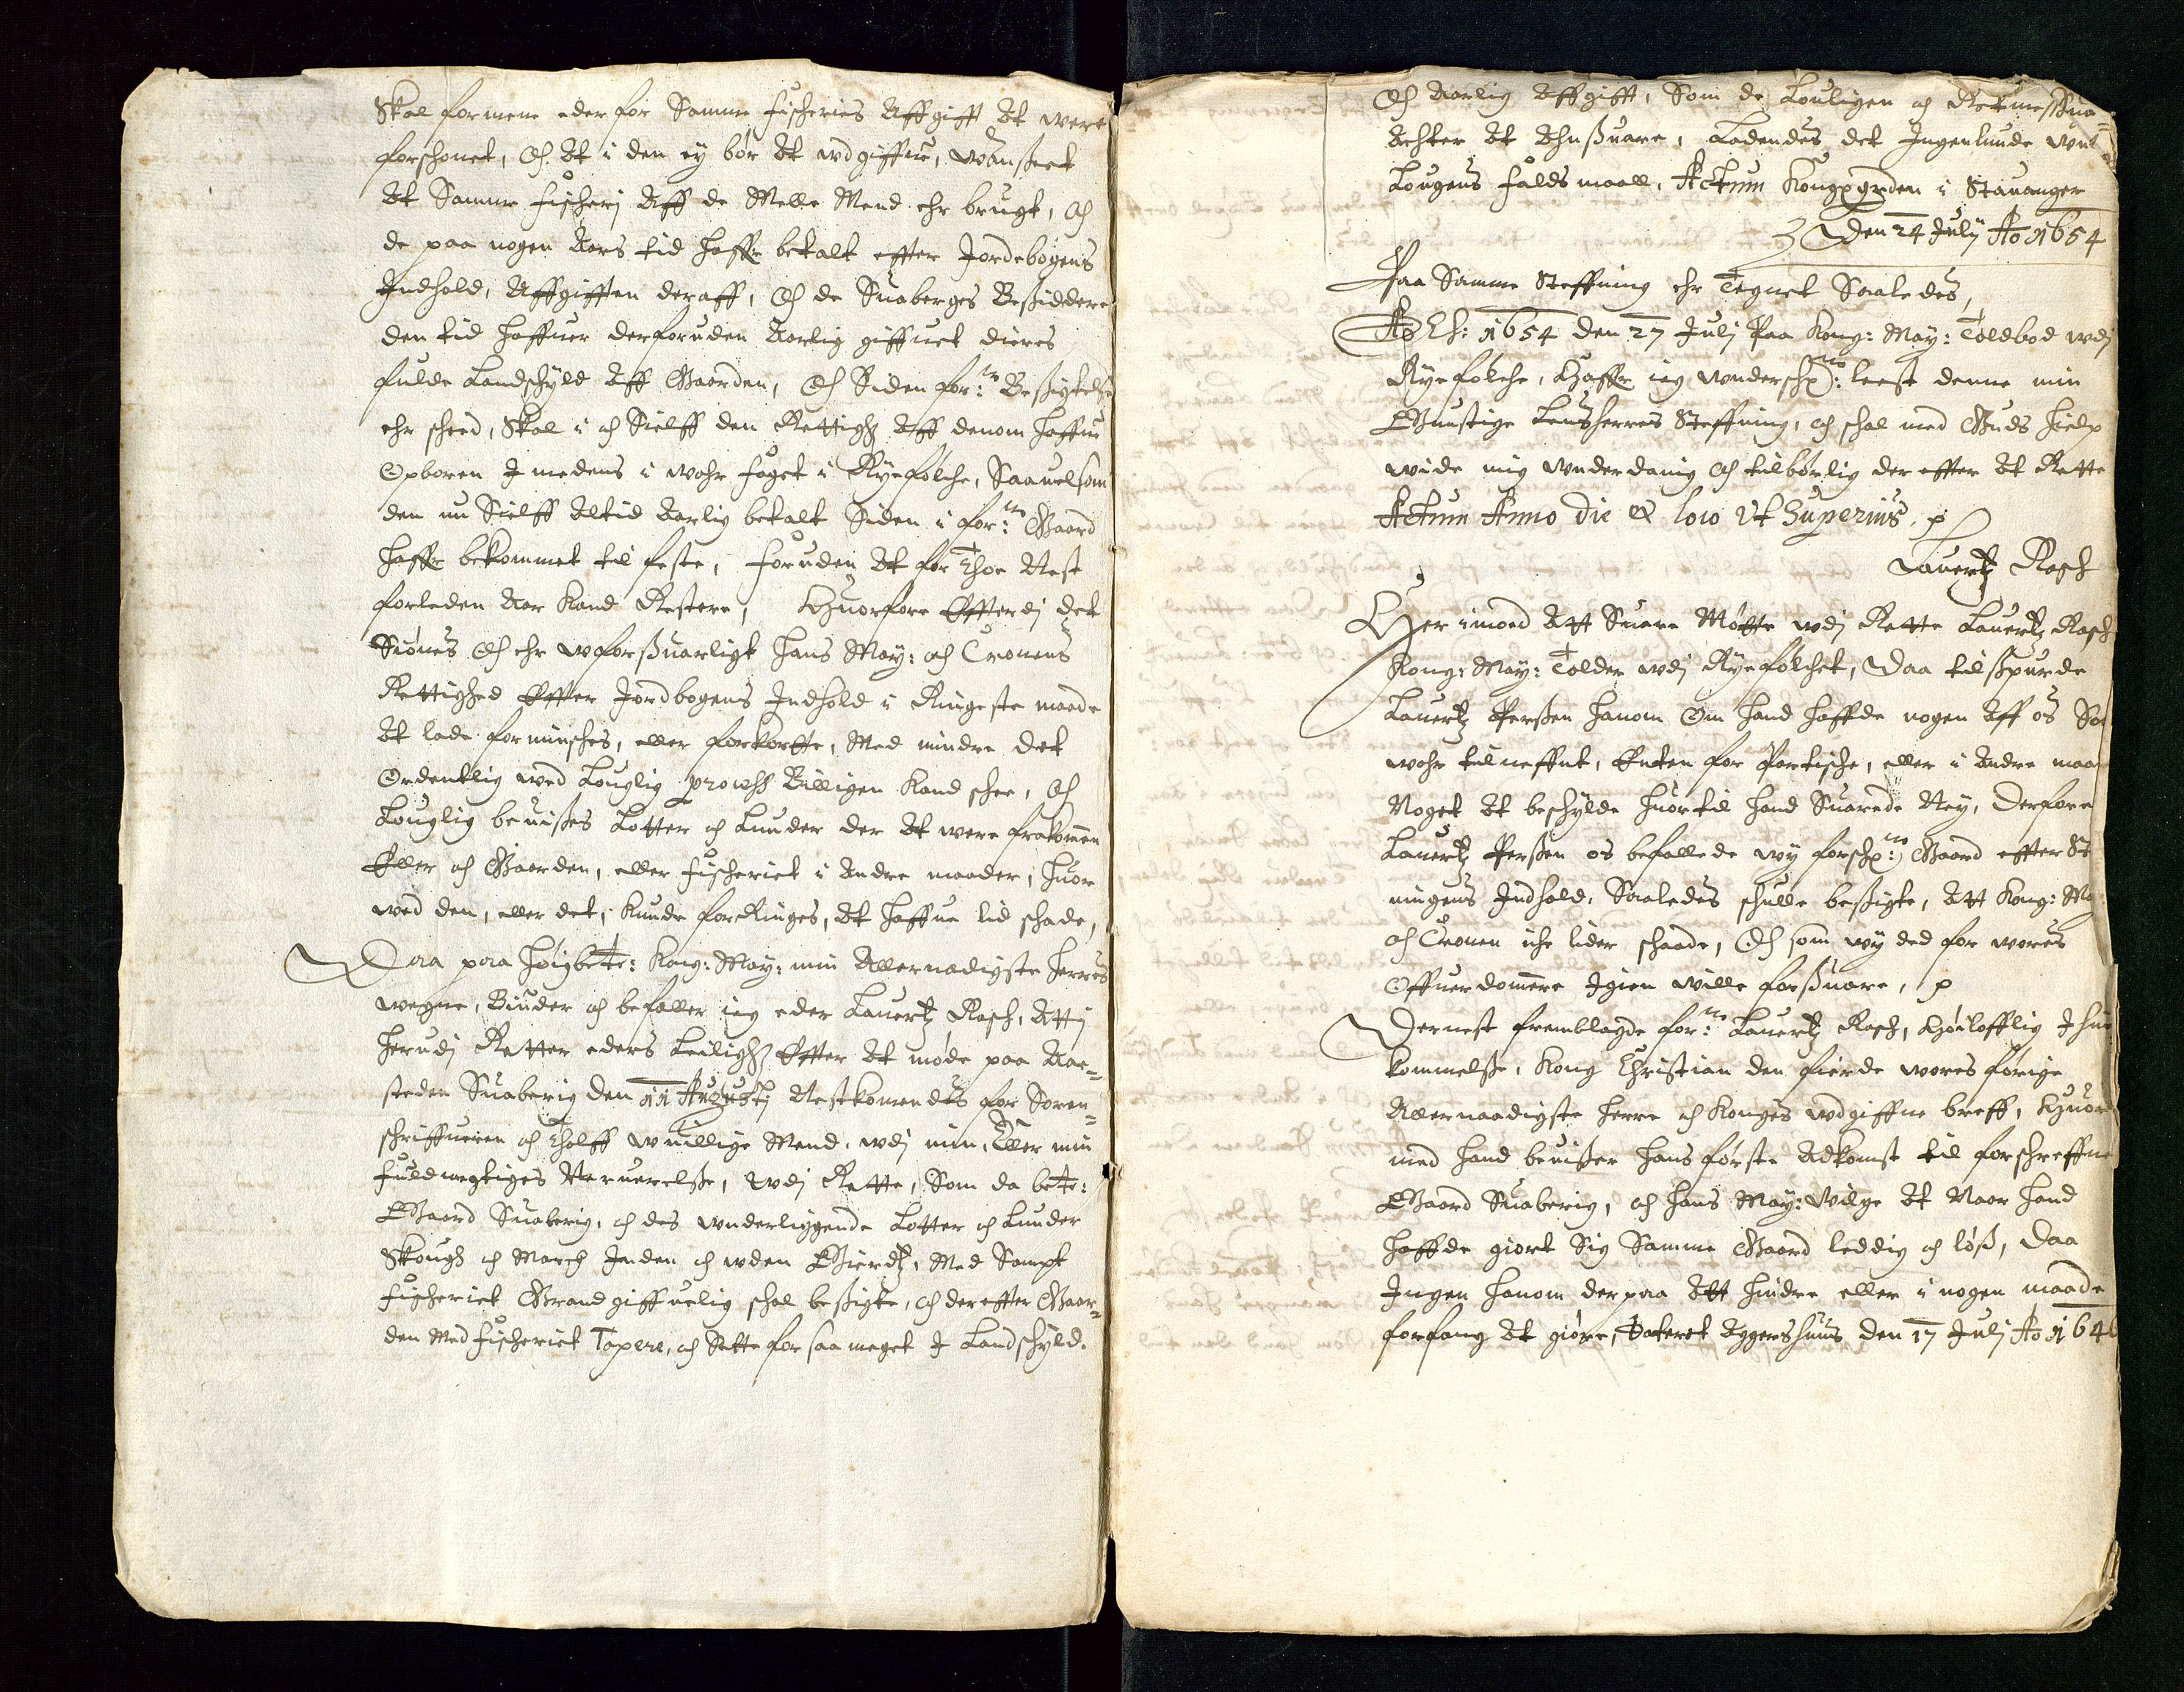 Skal formene eder for Samme fischeries Affgifft At were
forschonet, Och At i den ey bør At udgiffue, uanßeet
At Samme fischerj Aff de Melle Mend ehr brugt, och
de paa nogen Aars tid haffr betalt effter Jordebogens
Indhold, Affgifften deraff, Och de Suaberges Beßiddere
den tid haffuer derforuden Aarlig giffuet dieres
fulde Landschyld Aff Gaarden, Och Siden for:ne Beßigtelße
ehr scheed, Skal i och Sielff den Rettigh Aff denom haffue
Opboren J medens i wohr foget i Ryefølche, Saauelsom
den nu Sielff Altid Aarlig betalt Siden i for:ne Gaard
haffr bekommet til feste, foruden At for Thoe Nest
forleden Aar Kand Restere, Huorfore Effterdj det
Siønes Och ehr uforßuarligt Hans May: och Cronens
Rettighed Effter Jordbogens Indhold i Ringeste maade
At lade forminsches, eller forkortte, Med mindre det
Ordentlig med Louglig process Billigen Kand schee, Och
Louglig beuißes Lotter och Lunder der At were frakommen
Eller och Gaarden, eller fischeriet i Andre maader, huor
wed den, eller det, Kunde forRinges, At haffue lid schade,
Daa paa høigbete: Kong: May: min Allernadigste Herres
wegne, Biuder och befaller ieg eder Lauertz Rasch, Attj
herudj Retter eders Leiligh Effter At møde paa Aae-
steden Suaberig den 11 Augustj Nestkomendes for Soren-
schriffueren och Tholff uuillige Mend, udj min, Eller min
fuldmegtiges Neruerelße, udj Rette, Som da bete:
Gaard Suaberig, och des underliggende Lotter och Lunder
Skough och March Inden och uden Gierdz, Med Sampt
fischeriet Grandgiffuelig schal beßigte, och dereffter Gaar-
den Med fischeriet Taxere, och Sette for saa meget J Landschyld.
Och Aarlig Affgifft, Som de Louligen och Retmeßßia-
Achter At Ahnßuare, Ladendes det Ingenlunde und
Lougens faldsmaall, Actum Kongxgrden i Stauanger
Den 24 July Ao 1654
Paa Samme Steffning ehr Tegnet Saaledes,
Ao Ch: 1654 den 27 Julj Paa Kong: May: Toldbod udj
Ryefølche, Haffr ieg underschr:ne leest denne min
Gunstige Lensherres Steffning, och schal med Guds hielp
wide mig underdanig och tilbørlig der effter At Rette
Actum Anno die & loco Ut Superius,
Lauertz Rasch
Her imoed Att Suare Møtte udj Rette Lauertz Rasch
Kong: May: Tolder udj Ryefølchet, Daa tilßpurde
Lauertz Perßen hanom Om hand haffde nogen Aff os
wohr tilneffnt, Enten for Partische, eller i Andre maa
Noget At beschylde huortil hand Suarede Ney, Derfore
Lauertz Perßen os befallede wy forschr:ne Gaard effter St
ningens Indhold, Saaledes schulle beßigte, Att Kong: Ma
och Cronen iche lider schaade, Och som wy ded for wores
Offuerdomere Igien wille forßuare,
Dernest fremblagde for:ne Lauertz Rasch, Høilofflig Jhu
kommelße, Kong Christian den fierde wores forige
Allernaadigste Herre och Konges udgiffne breff, Huor
med hand beuißer hans første Adkomst til forschreffne
Gaard Suaberig, och hans May: Wilge At Naar hand
haffde giort Sig Samme Gaard leddig och løß, Daa
Ingen hanom derpaa Att hindre eller i nogen maade
forfang At giøre, Dateret Aggershuus den 17 Julj Ao 164